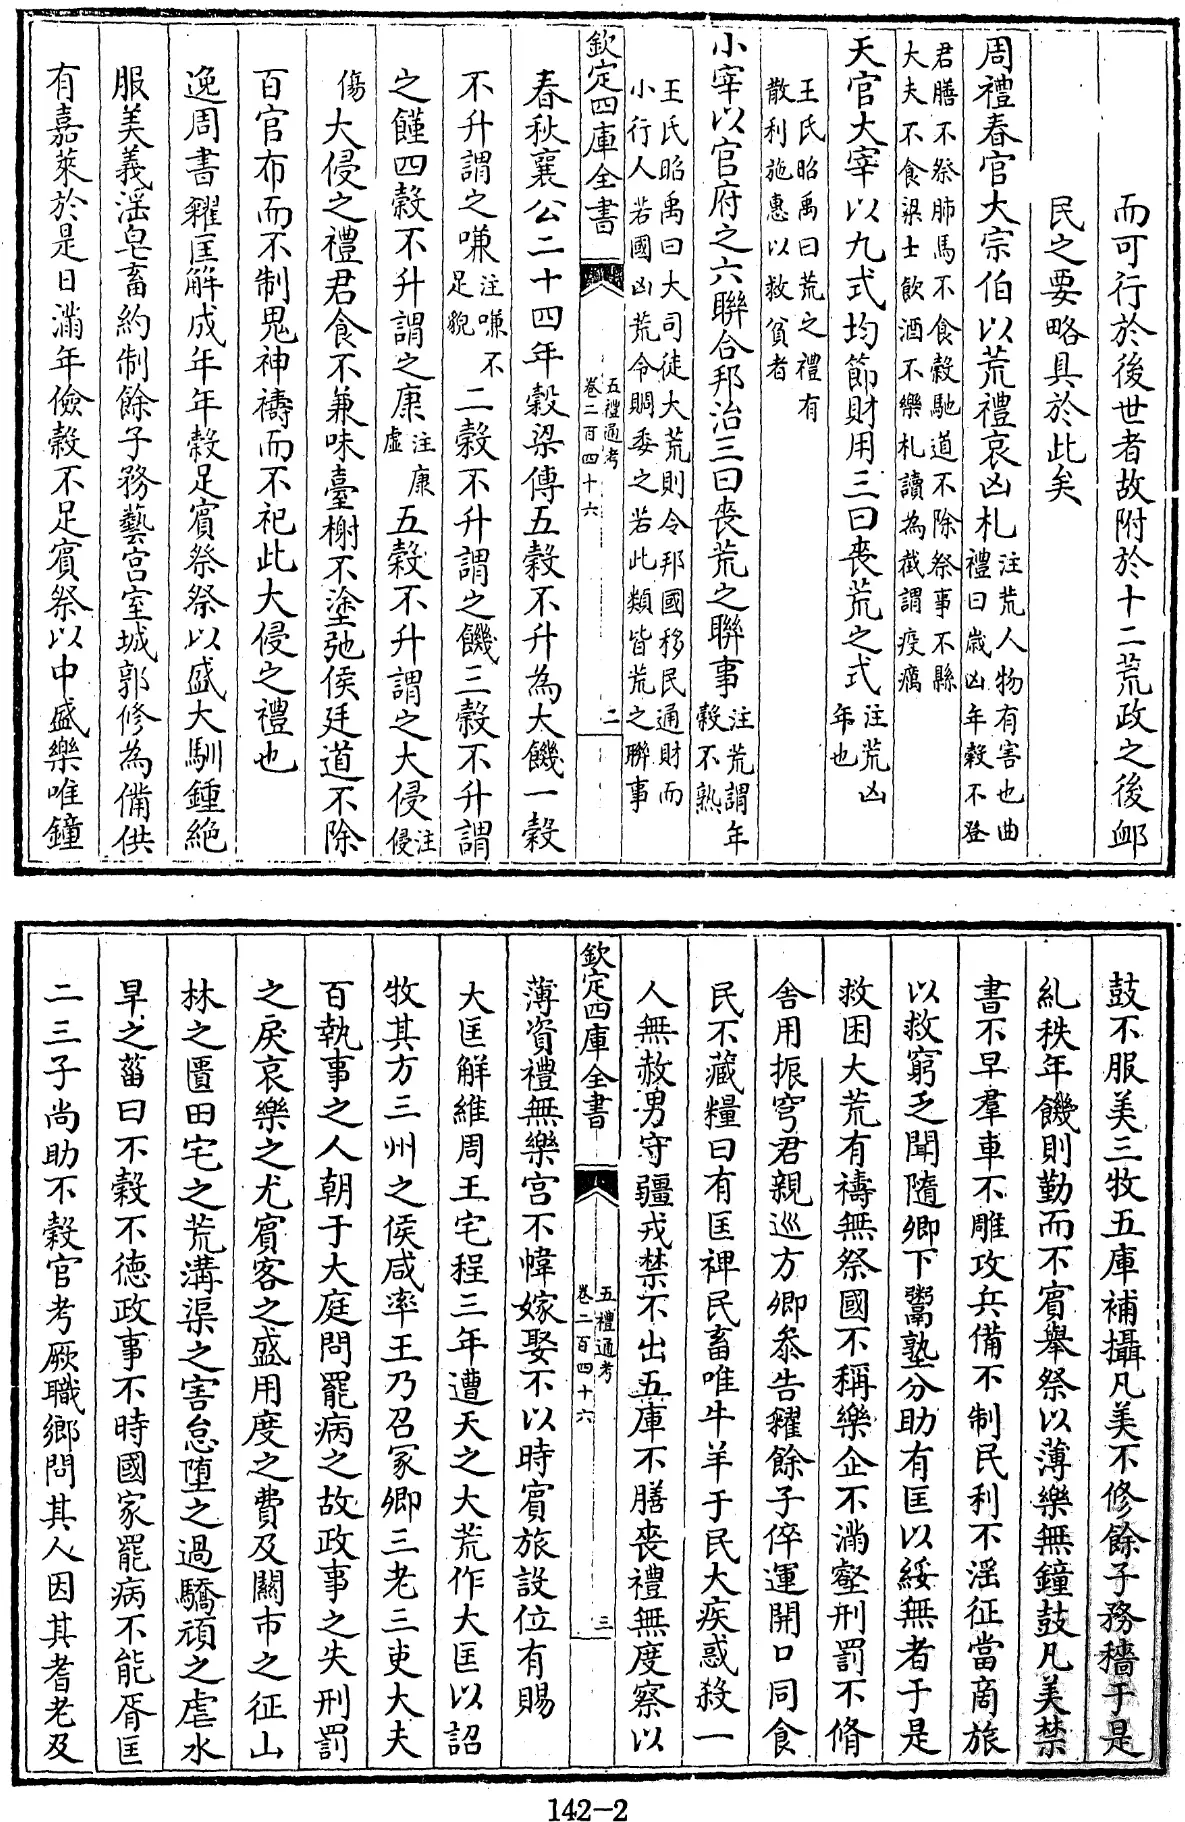 而可行於後世者故附於十二荒政之後卹
民之要略具於此矣
周禮春官大宗伯以荒禮哀凶札注荒人物有害也曲
禮曰歲凶年穀不登
君膳不祭肺馬不食穀馳道不除祭事不縣
大夫不食粱士飲酒不樂札讀為截謂疫癘
天官大宰以九式均節財用三曰喪荒之式注荒凶
年也
王氏昭禹曰荒之禮有
散利施惠以救貧者
小宰以官府之六聯合邦治三曰喪荒之聯事注荒謂年
穀不熟
王氏昭禹曰大司徒大荒則令邦國移民通財而
小行人若國凶荒令賙委之若此類皆荒之聯事
欽定四庫全書
五禮通考
卷二百四十六
二
春秋襄公二十四年穀梁傳五穀不升為大饑一穀
不升謂之嗛注嗛不
足貌二穀不升謂之饑三穀不升謂
之饉四穀不升謂之康注康
虛五穀不升謂之大侵注
侵
傷大侵之禮君食不兼味臺榭不塗弛侯廷道不除
百官布而不制鬼神禱而不祀此大侵之禮也
逸周書糴匡解成年年穀足賓祭祭以盛大馴鍾絶
服美義淫皂畜約制餘子務藝宫室城郭修為備供
有嘉菜於是日滿年儉穀不足賓祭以中盛樂唯鐘
鼓不服美三牧五庫補攝凡美不修餘子務穡于是
糺秩年饑則勤而不賓舉祭以薄樂無鐘鼓凡美禁
書不早羣車不雕攻兵備不制民利不淫征當商旅
以救窮乏聞隨卿下鬻塾分助有匡以綏無者于是
救困大荒有禱無祭國不稱樂企不滿壑刑罰不脩
舍用振穹君親巡方卿叅告糴餘子倅運開口同食
民不藏糧曰有匡裨民畜唯牛羊于民大疾惑殺一
人無赦男守疆戎禁不出五庫不膳喪禮無度察以
欽定四庫全書
五禮通考
卷二百四十六
三
薄資禮無樂宫不幃嫁娶不以時賓旅設位有賜
大匡解維周王宅程三年遭天之大荒作大匡以詔
牧其方三州之侯咸率王乃召冢卿三老三吏大夫
百執事之人朝于大庭問罷病之故政事之失刑罰
之戾哀樂之尤賓客之盛用度之費及關市之征山
林之匱田宅之荒溝渠之害怠墮之過驕頑之虐水
旱之菑曰不穀不德政事不時國家罷病不能胥匡
二三子尚助不穀官考厥職鄉問其人因其耆老及
142-2